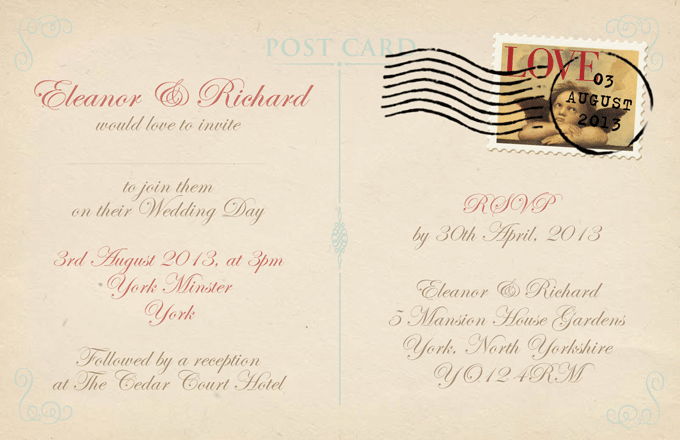 POST CARD
Eleanor & Richard
would love to invite
to join them
on their Wedding Day
3rd August 2013, at 3pm
York Minster
York
Followed by a reception
at The Cedar Court Hotel
LOVE
03
AUGUST
2013
RSVP
by 30th April, 2013
Eleanor & Richard
5 Mansion House Gardens
York, North Yorkshire
YO12 4RM